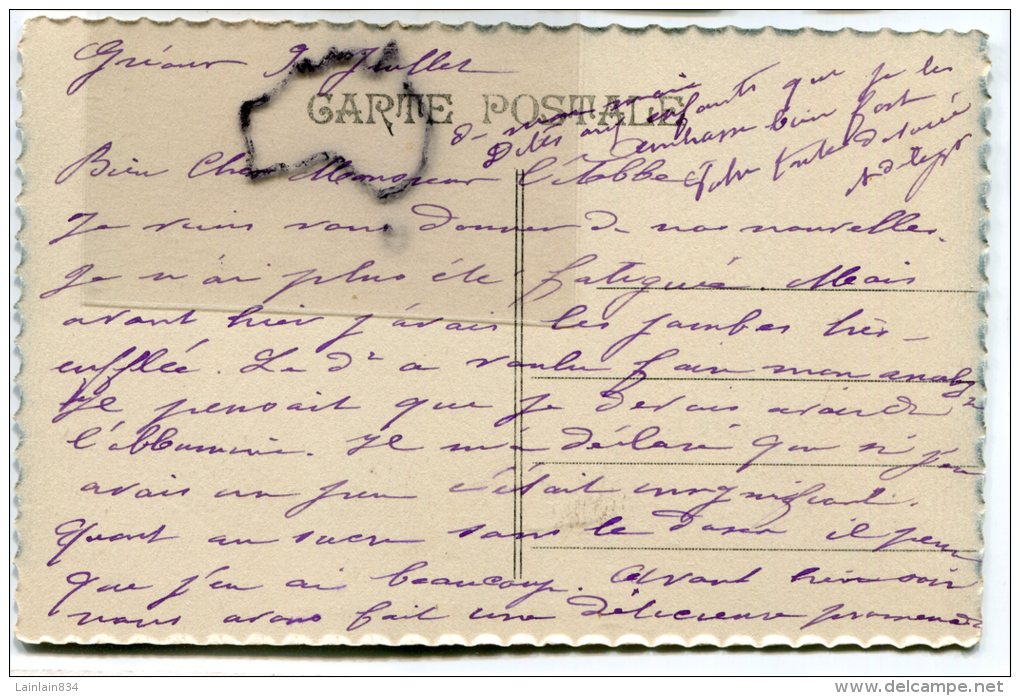 Gréoux 9 Juillet
CARTE POSTALE
Bien Cher Monsieur l'Abbé
Je viens vous donner de nos nouvelles.
Je n'ai plus été fatiguée. Mais
avant hier j'avais les jambes très
enflée. Le dr a voulu faire mon analyse
Il pensait que je devais avoir de
l'albumine. Il m'a déclaré que si j'en
avais un peu c'était insignifiant.
Quant au sucre sans le doser il pense
que j'en ai beaucoup. Avant hier soir
nous avons fait une délicieuse promenade
Dites aux enfants que je les
embrasse bien fort
Lainlain834
www.delcampe.net